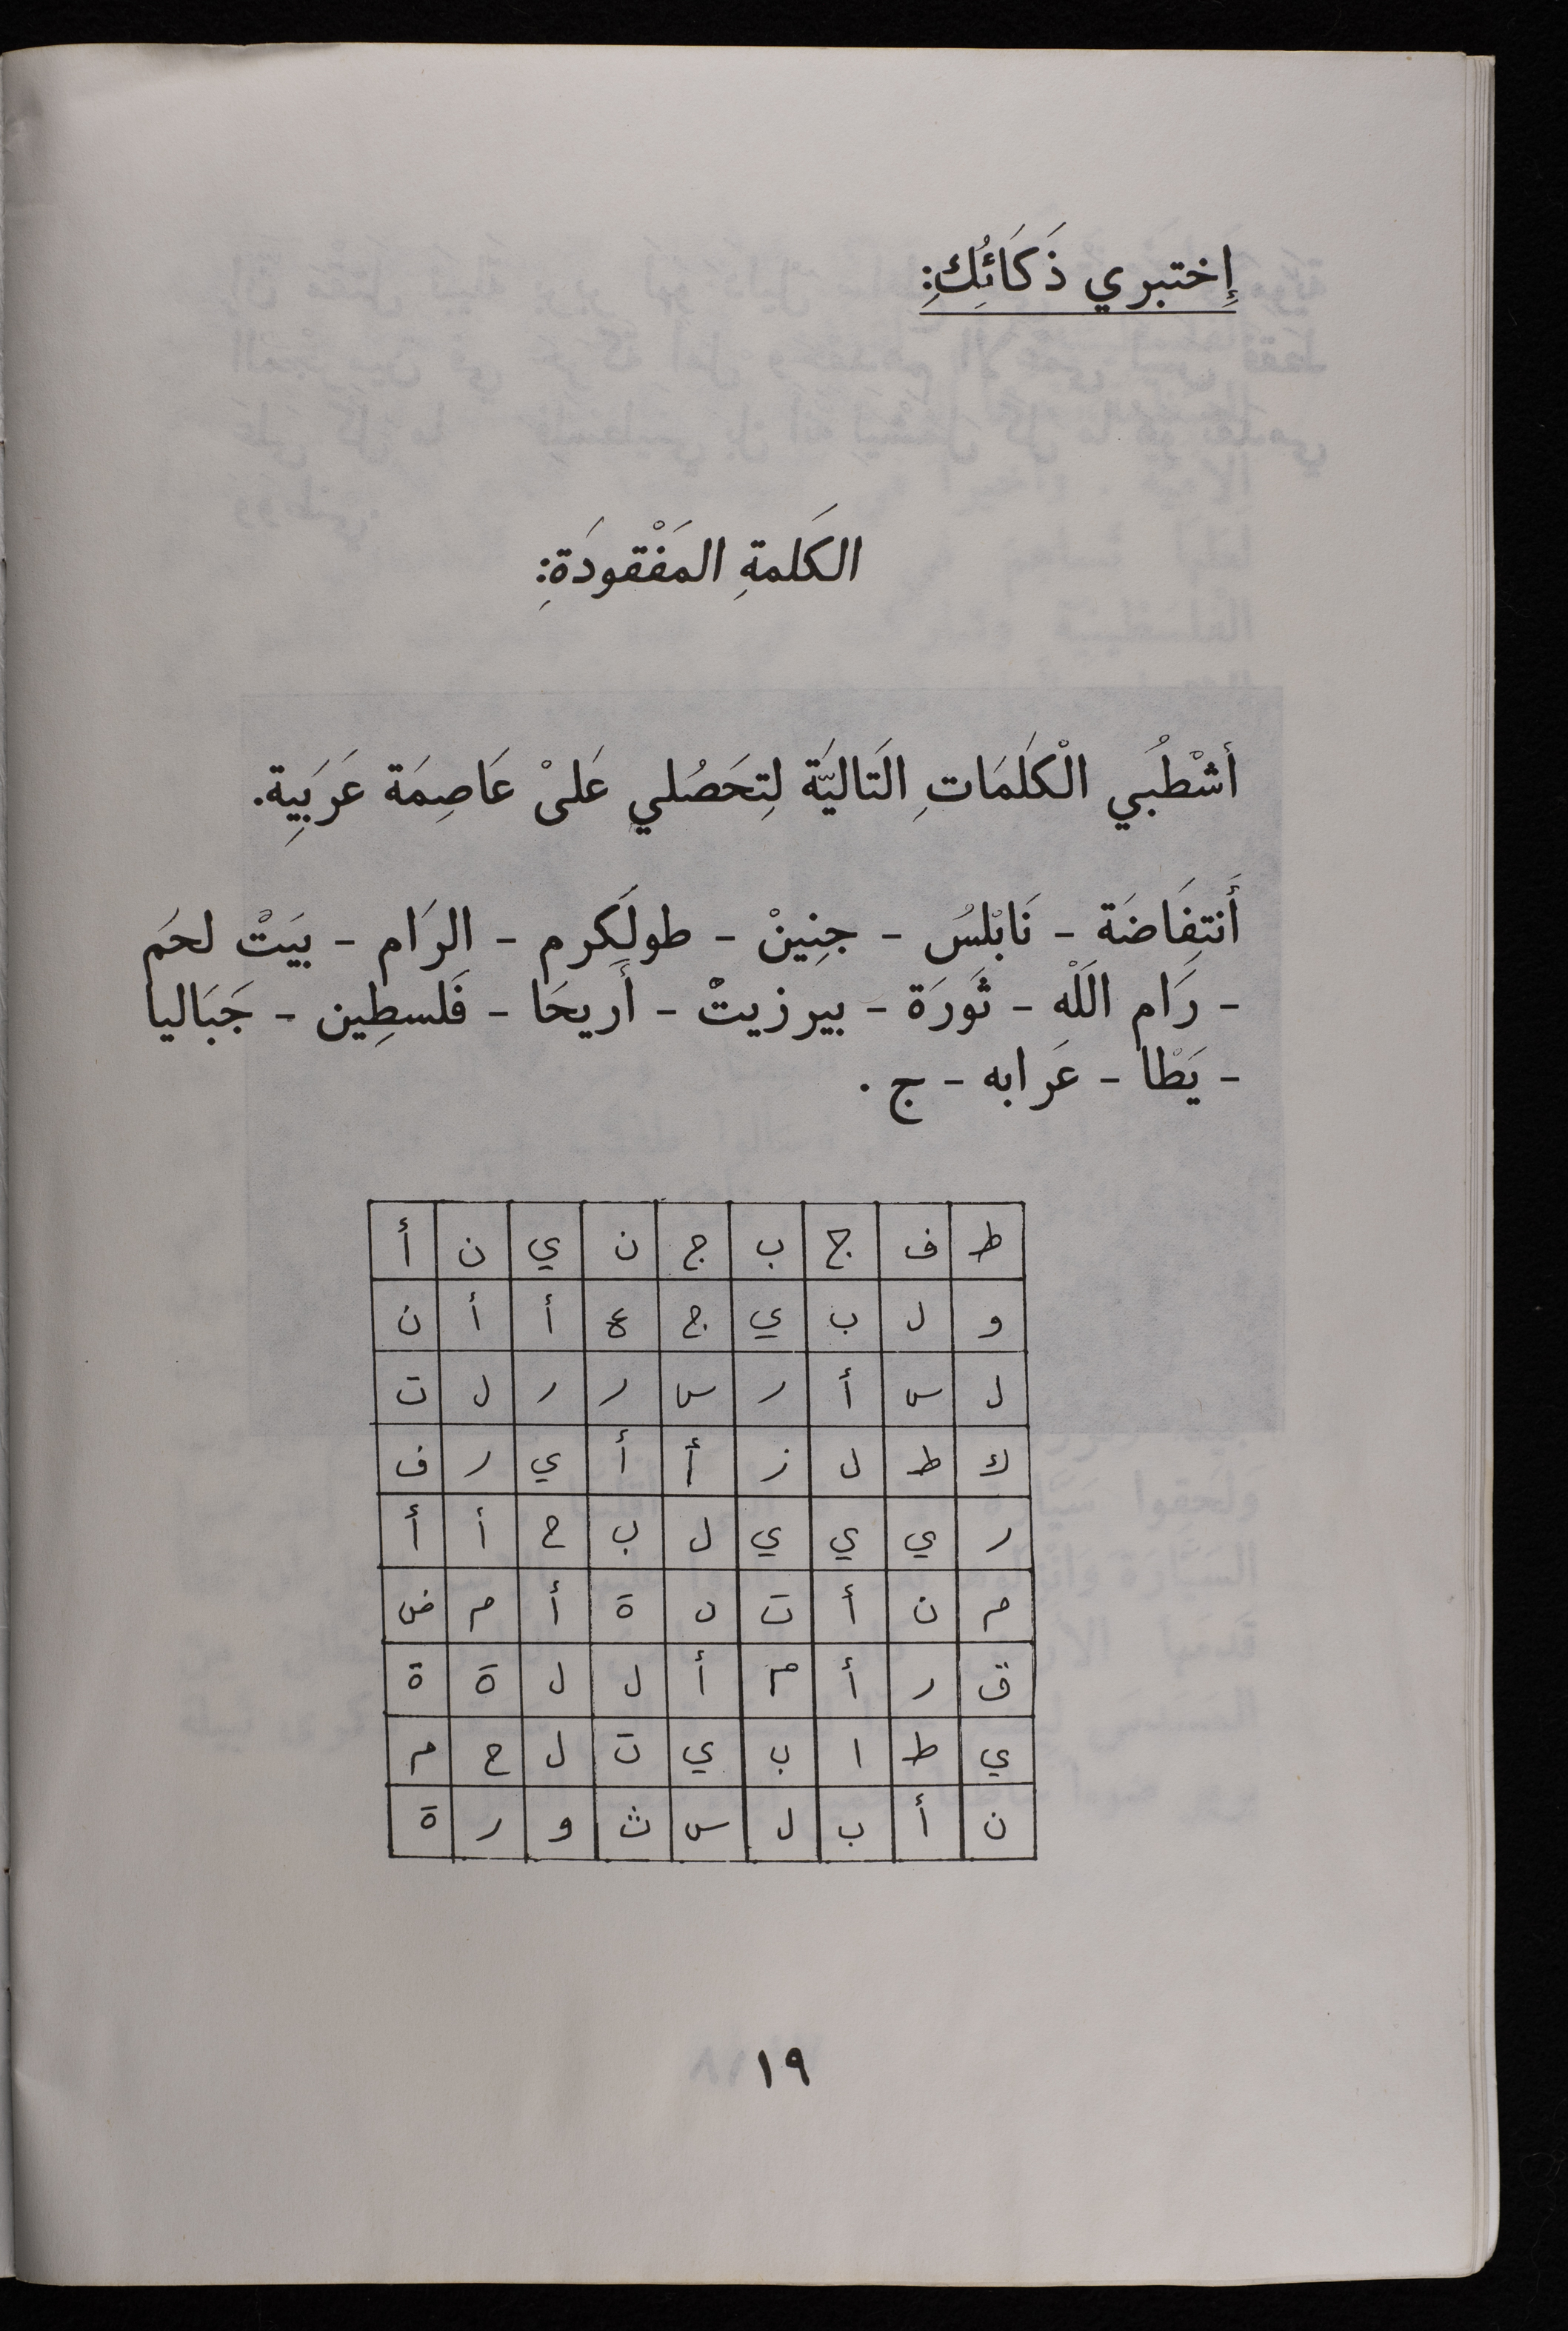 إِختبري ذَكَائُكِ:
الكَلمةِ المَفْقودَةِ:
أشْطُبي الْكَلمَاتِ الَتاليَّة لِتحَصُلي عَلىْ عَاصِمَة عَرَبِية.
أَنتِفَاضَة - نَابْلسُ - جنِينْ - طولَكرم - الرَام - بيَتْ لحَم
- رَام الَلْه - ثَورَة - بيرزيتْ - أَريحَا - فَلسطِين - جَبَاليا
- يَطْا - عَرابه - ج .
ط ف ج ب ج ن ي ن أ
و ل ب ي ج ع أ أ ن
ل س أ ر س ر ر ل ت
ك ط ل ز أ أ ي ر ف
ر ي ي ي ل ب ح أ أ
م ن أ ت ن ة أ م ض
ق ر أ م أ ل ل ة ة
ي ط ا ب ي ت ل ح م
ن أ ب ل س ث و ر ة
١٩